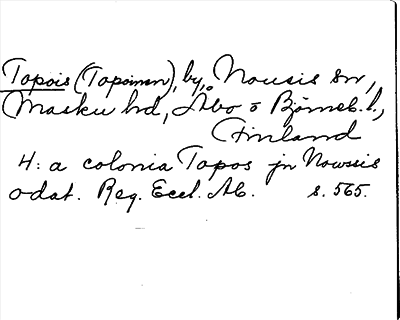 Topois (Topoinen), by, Nousis sn,
Masku hd, Åbo o Björneb. l.,
Finland
4: a colonia Topos jn Nowsis
odat. Reg. Eccl. Ab. s. 565.